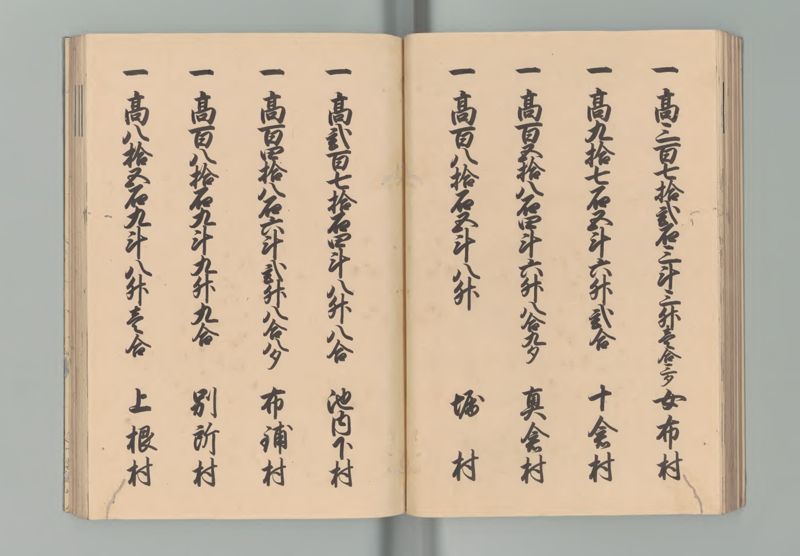 一高三百七拾弐石三斗三升壱合三夕 女布村
一高九拾七石五斗六升弐合 十倉村
一高百五拾八石四斗六升八合九夕 真倉村
一高百八拾石五斗八升 堀村
一高弐百七拾石四斗八升八合 池内下村
一高百四拾八石六斗弐升八合八夕 布鋪村
一高百八拾石九斗九升九合 別所村
一高八拾五石九斗八升壱合 上根村